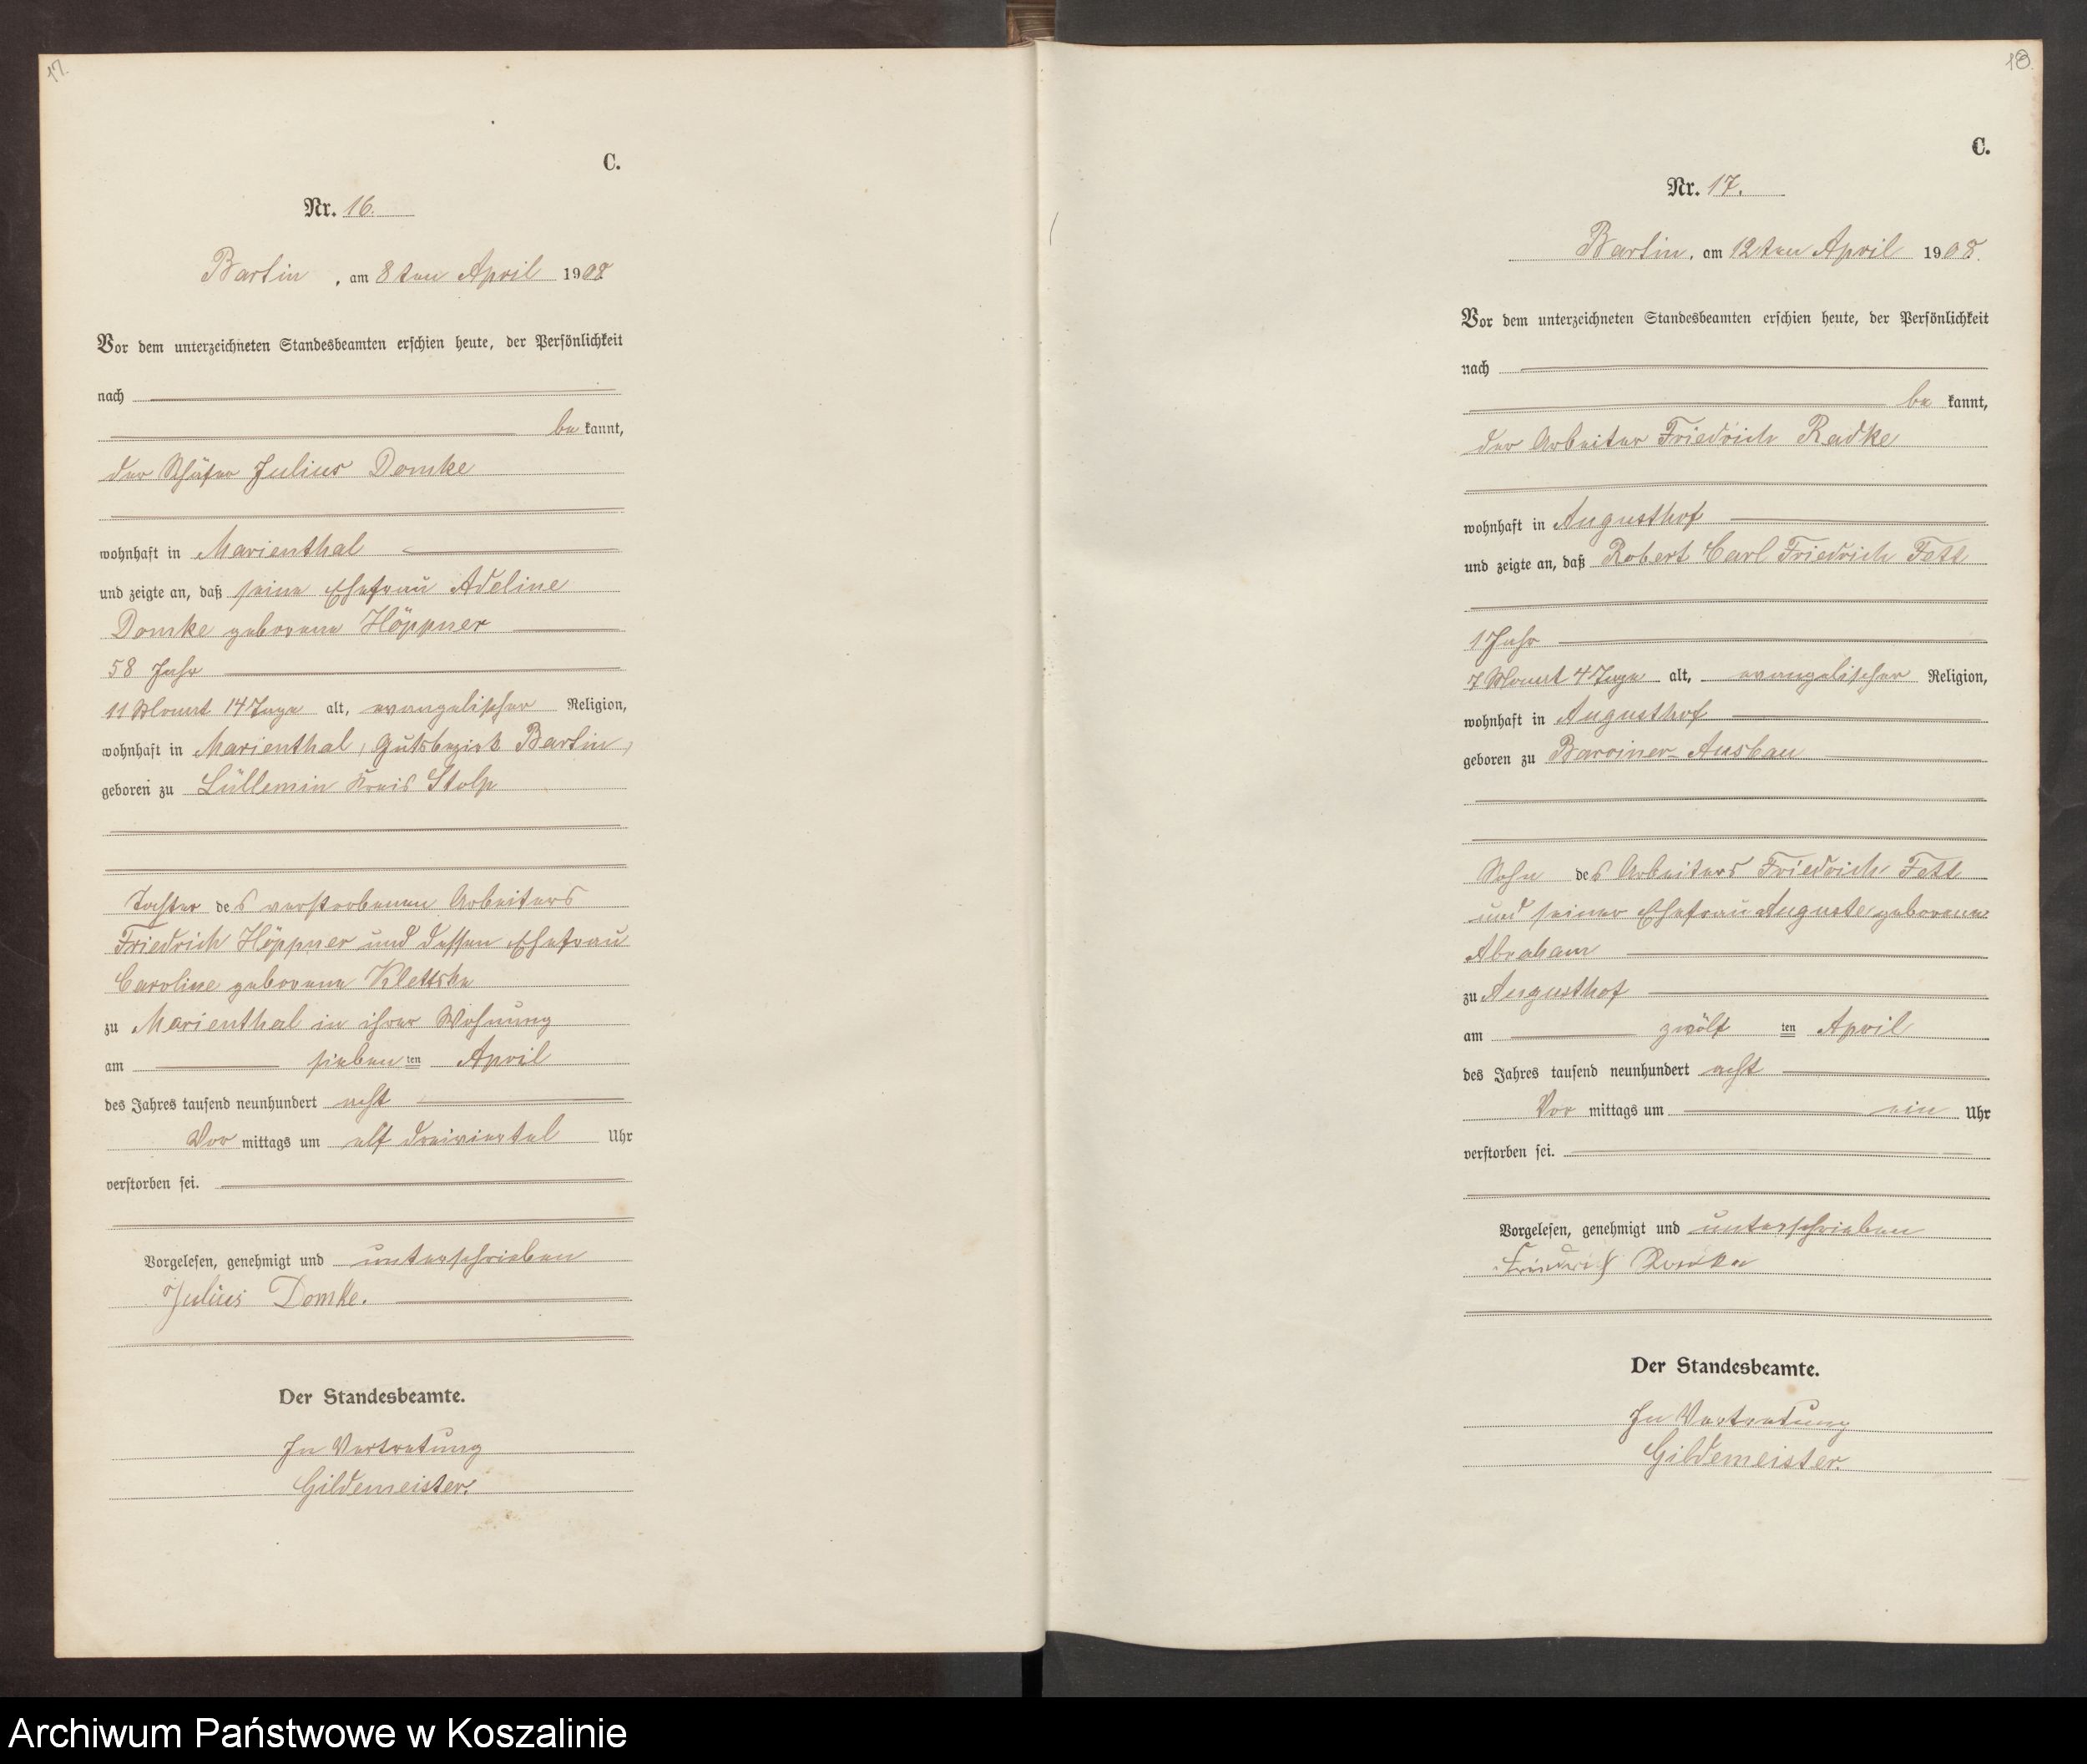 17.
C.
Nr. 16.
Bartin, am 8ten April 1908
Vor dem unterzeichneten Standesbeamten erschien heute, der Persönlichkeit
nach
be kannt,
der Schäfer Julius Domke
wohnhaft in Marienthal
und zeigte an, daß seine Ehefrau Adeline
Domke geborene Höppner
58 Jahr
11 Monat 14 Tage alt, evangelischer Religion,
wohnhaft in Marienthal, Gutsbezirk Bartin,
geboren zu Lüllemin Kreis Stolp
Tochter des verstorbenen Arbeiters
Friedrich Höppner und dessen Ehefrau
Caroline geborene Klettske
zu Marienthal in ihrer Wohnung
am sieben ten April
des Jahres tausend neunhundert acht
Vor mittags um elf dreiviertel Uhr
verstorben sei.
Vorgelesen, genehmigt und unterschrieben
Julius Domke.
Der Standesbeamte.
In Vertretung
Gildemeister.
18.
C.
Nr. 17.
Bartin, am 12ten April 1908.
Vor dem unterzeichneten Standesbeamten erschien heute, der Persönlichkeit
nach
be kannt,
der Arbeiter Friedrich Radke
wohnhaft in Augusthof
und zeigte an, daß Robert Carl Friedrich Fett
1 Jahr
7 Monat 4 Tage alt, evangelischer Religion,
wohnhaft in Augusthof
geboren zu Barviner-Ausbau
Sohn des Arbeiters Friedrich Fett
und seiner Ehefrau Auguste geborene
Abraham
zu Augusthof
am zwölf ten April
des Jahres tausend neunhundert acht
Vor mittags um ein Uhr
verstorben sei.
Vorgelesen, genehmigt und unterschrieben
Friedrich Radke
Der Standesbeamte.
In Vertretung
Gildemeister.
Archiwum Państwowe w Koszalinie